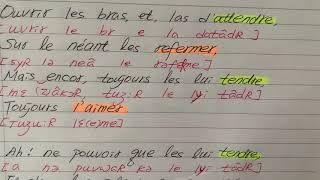 Ouvrir les bras, et, las d'attendre,
[uvriR le br e la datãdR]
Sur le néant les refermer,
[syR lə neã le
Mais encor, toujours les lui tendre
tuʒu:R le lɥi tãdR]
Toujours l'aimer
[Tuʒu:R lɛ(e)me]
Ah! ne pouvoir que les lui tendre,
[ɑ nə puvwɑR kə le lɥi tãdR]